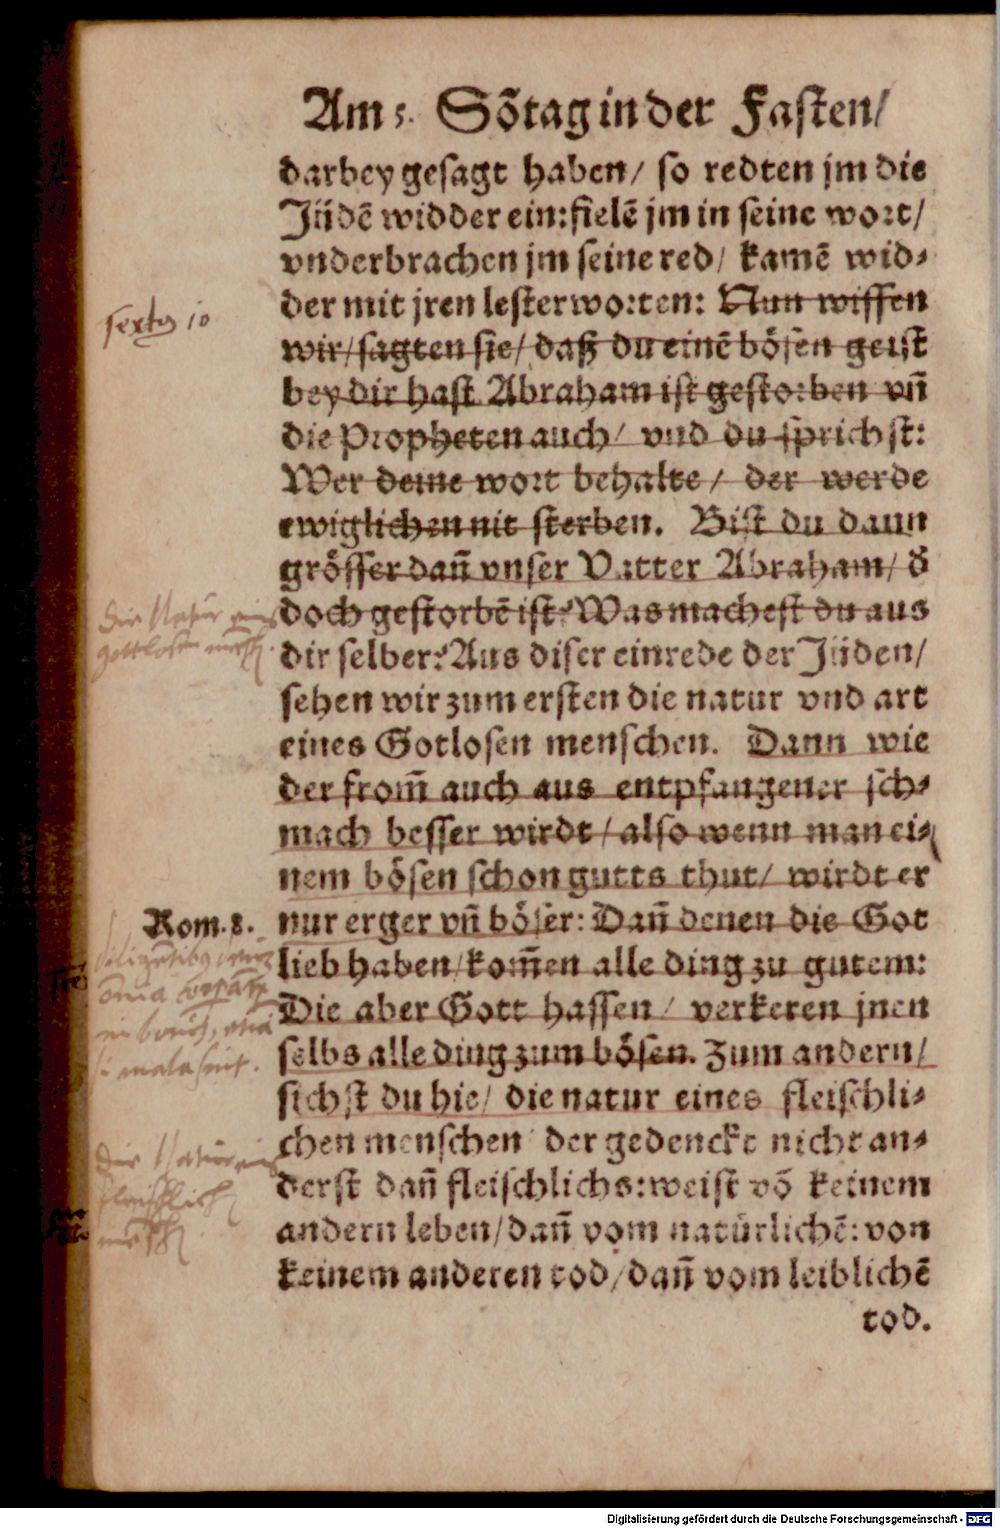 Am 5. Sõtag in der Fasten/
darbey gesagt haben/ so redten jm die
Jüdẽ widder ein: fielẽ jm in seine wort/
vnderbrachen jm seine red/ kamẽ wid⸗
der mit jren lesterworten: Nun wissen
Textus 10
wir/ sagten sie/ daß du einẽ bösen geist
bey dir hast Abraham ist gestorben vñ
die Propheten auch/ vnd du sprichst:
Wer deine wort behalte/ der werde
ewiglichen nit sterben. Bist du dann
grösser dañ vnser Vatter Abraham/ d̕
doch gestorbẽ ist? Was machest du aus
Die Natur eins
dir selber? Aus diser einrede der Jüden/
gottlosen
sehen wir zum ersten die natur vnd art
eines Gotlosen menschen. Dann wie
der from̃ auch aus entpfangener sch⸗
mach besser wirdt/ also wenn man ei⸗
nem bösen schon gutts thut/ wirdt er
Rom. 8.
nur erger vñ böser: Dañ denen die Got
lieb haben/ kom̃en alle ding zu gutem:
Die aber Gott hassen/ verkeren jnen
selbs alle ding zum bösen. Zum andern/
mala sint.
sichst du hie/ die natur eines fleischli⸗
chen menschen der gedenckt nicht an⸗
Die Natur eins
derst dañ fleischlichs: weist võ keinem
fleischlich
andern leben/ dañ vom natürlichẽ: von
keinem anderen tod/ dañ vom leiblichẽ
tod.
Digitalisierung gefördert durch die Deutsche Forschungsgemeinschaft - DFG